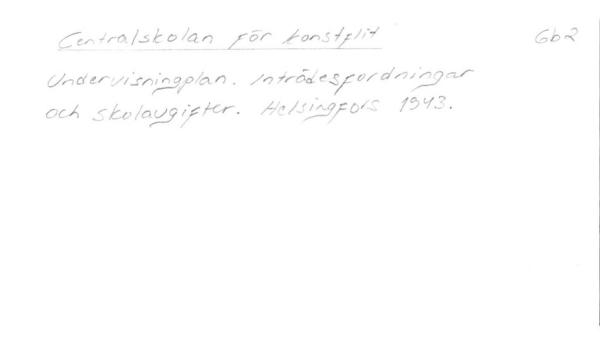 Centralskolan för konstflit Gb2
Undervisningplan. Inträdesfordningar
och skolavgifter. Helsingfors 1943.